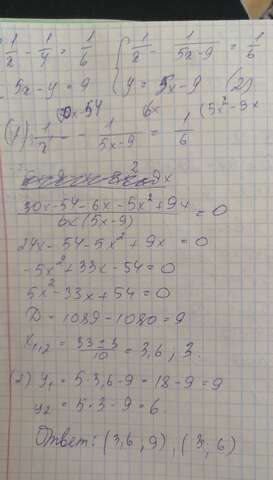 1/x - 1/y = 1/6 { 1/x - 1/(5x-9) = 1/6
5x-y=9 y = 5x-9 (2)
30x-54 6x (5x²-9x
(1) 1/x - 1/(5x-9) = 1/6
(30x-54-6x-5x²+9x)/(6x(5x-9)) = 0
24x-54-5x²+9x=0
-5x²+33x-54=0
5x²-33x+54=0
D=1089-1080=9
x₁,₂ = (33±3)/10 = 3,6; 3.
(2) y₁ = 5·3,6-9=18-9=9
y₂ = 5·3-9=6.
Ответ: (3,6, 9), (3, 6)